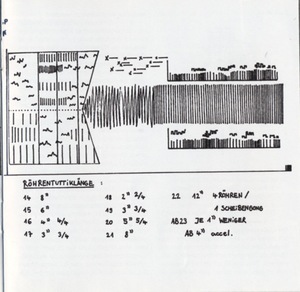 RÖHRENTUTTIKLÄNGE :
14 8"
15 6"
16 4" 4/4
17 3" 3/4
18 2" 2/4
19 3" 3/4
20 5" 5/4
21 8"
22 12" 4 RÖHREN /
1 SCHEIBENGONG
AB 23 JE 1" WENIGER
AB 4" accel.